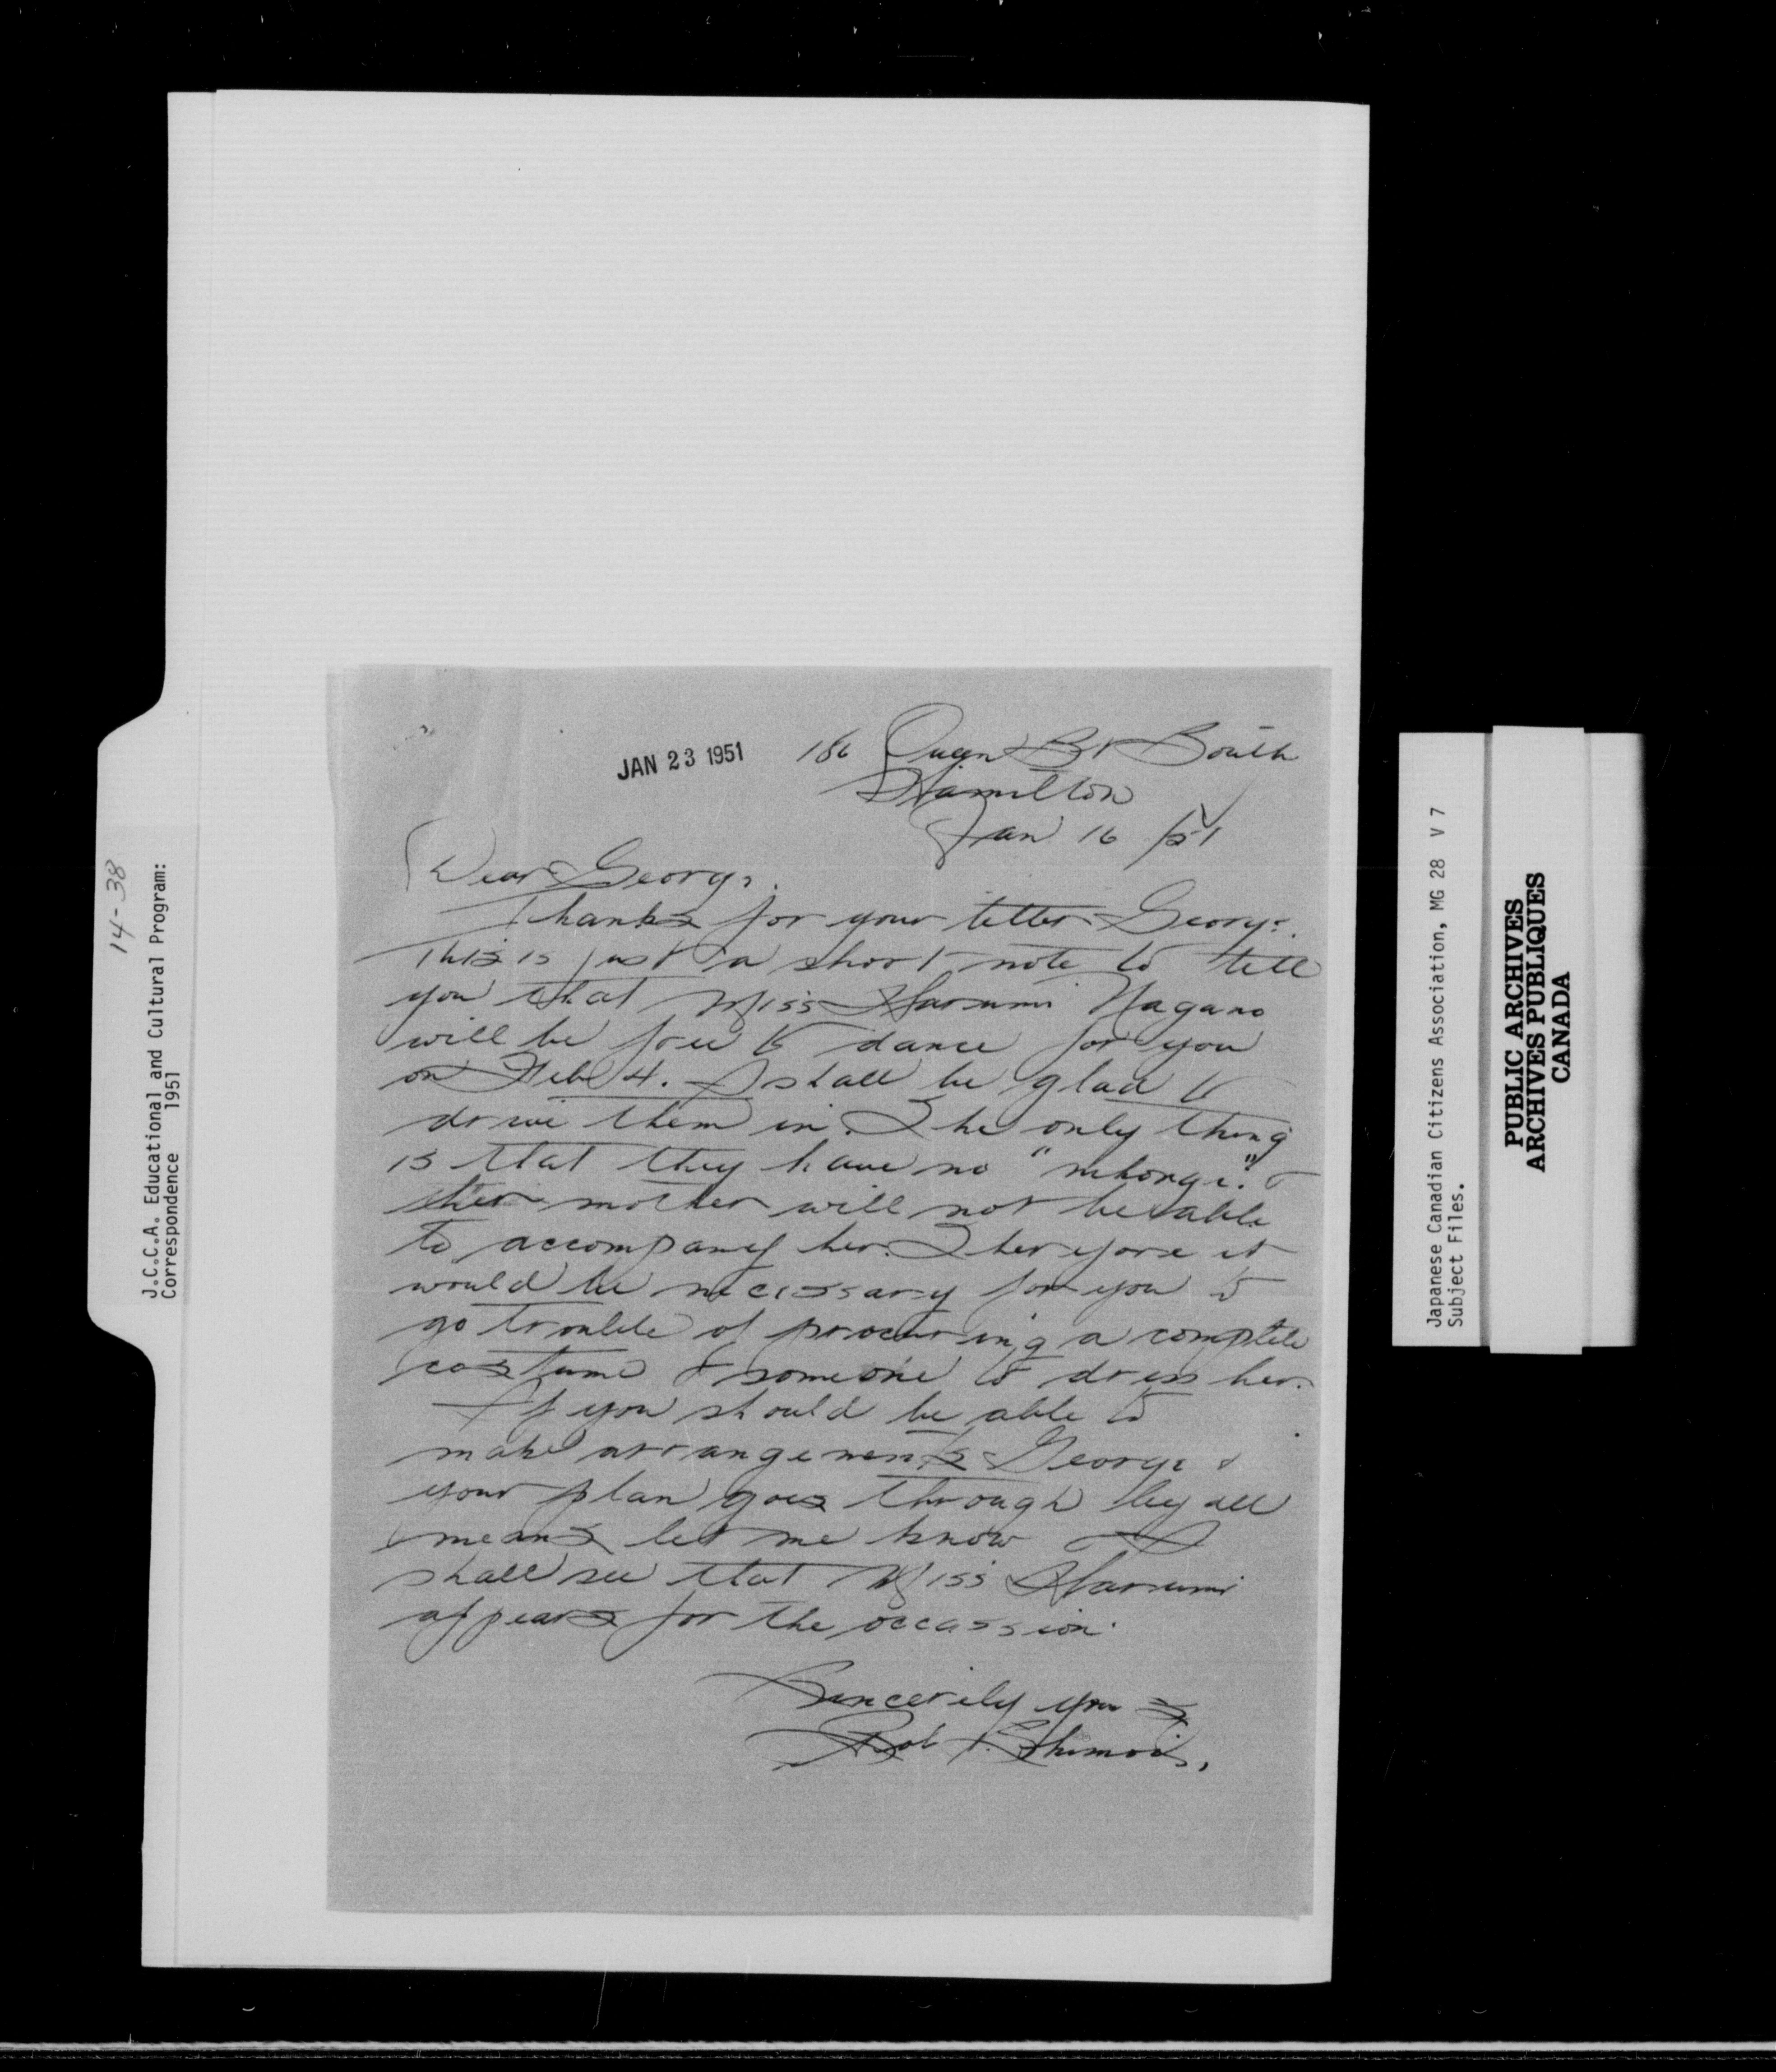 14-38
J.C.C.A. Educational and Cultural Program:
Correspondence 1951
JAN 23 1951
186 Queen St South
Hamilton
Jan 16 /51
Dear George.
Thanks for your letter George.
This is just a short note to tell
you that Miss Harumi Nagano
will be free to dance for you
on Feb 4. I shall be glad to
drive them in. The only thing
is that they have no "nihongi". &
her mother will not be able
to accompany her. Therefore it
would be necessary for you to
go trouble of procuring a complete
costume & someone to dress her.
If you should be able to
make arrangements George &
your plan goes through by all
means let me know I
shall see that Miss Harumi
appears for the occassion.
Sincerely yours
Bob Shimoi.
Japanese Canadian Citizens Association, MG 28 V 7
Subject Files.
PUBLIC ARCHIVES
ARCHIVES PUBLIQUES
CANADA